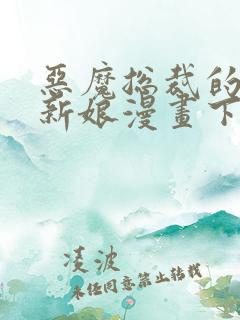 惡魔总裁的
新娘漫畫下
凌波
未经同意禁止转载